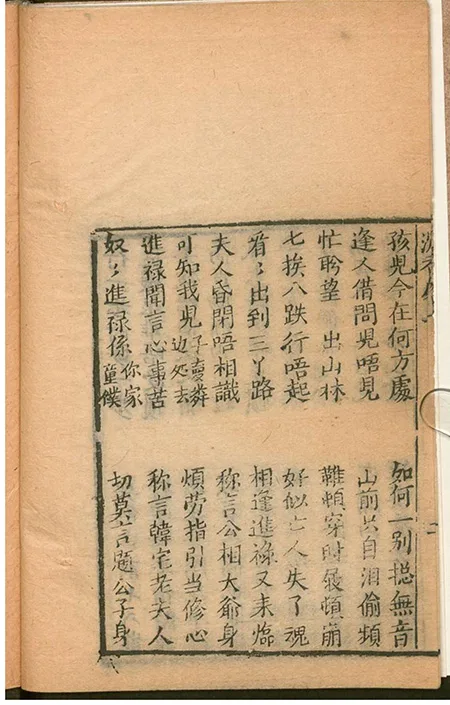 孩兒今在何方處　如何一別摠無音
逢人借問見唔見　山前只自泪偷頻
忙盼望　出山林　頓穿時頓崩
七挨八跌行唔起　好似亡人失了魂
看〻出到三丫路　相逢進祿又来臨
夫人昏閉唔相識　称言公相大爺身
可知我兒子賣麟边処去　煩劳指引当修心
進禄聞言心事苦　称言韓宅老夫人
奴〻進禄係你家童僕　切莫言題公子身